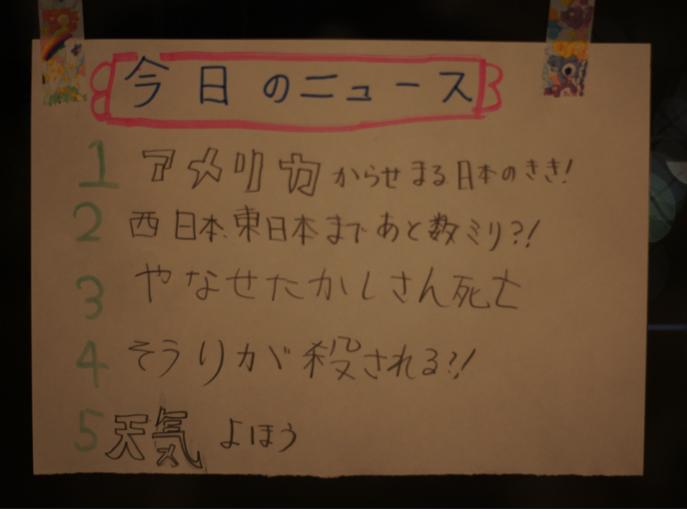 今日のニュース
1 アメリカからせまる日本のきき!
2 西日本、東日本まであと数ミリ?!
3 やなせたかしさん死亡
4 そうりが殺される?!
5 天気よほう